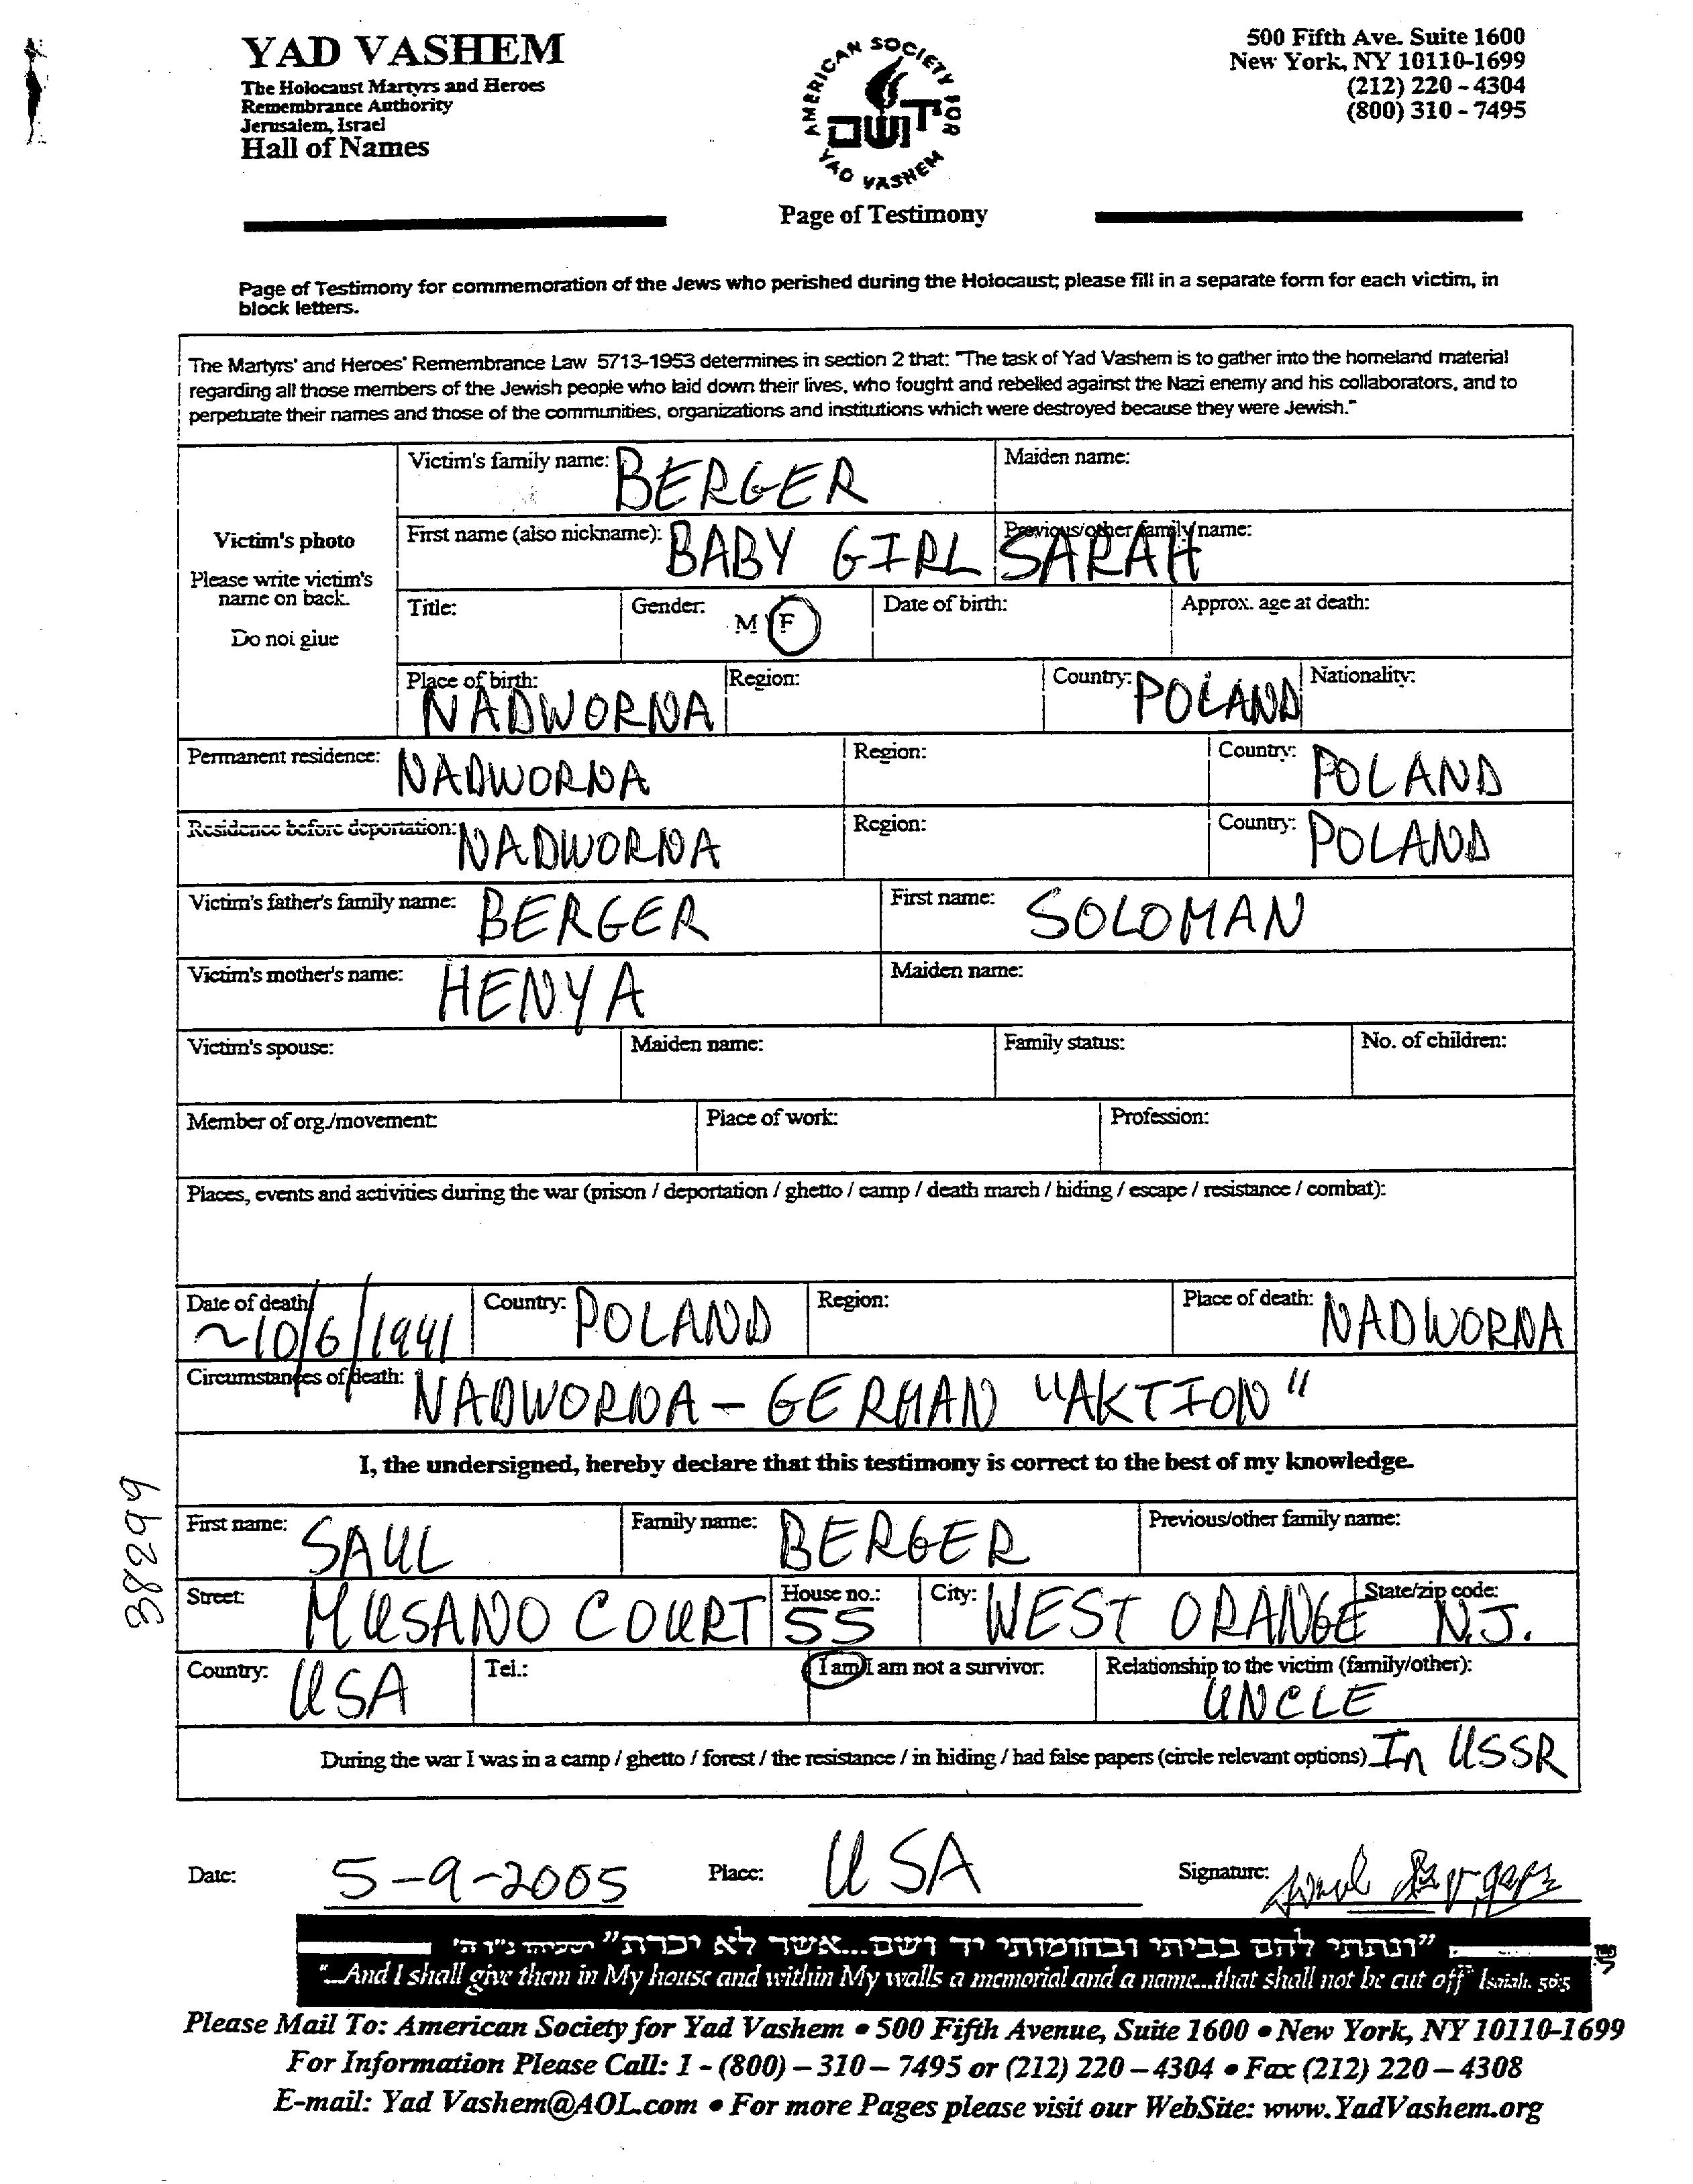 YAD VASHEM
The Holocaust Martyrs and Heroes
Remembrance Authority
Jerusalem, Israel
Hall of Names
AMERICAN SOCIETY FOR YAD VASHEM
יד ושם
500 Fifth Ave. Suite 1600
New York, NY 10110-1699
(212) 220 - 4304
(800) 310 - 7495
Page of Testimony
Page of Testimony for commemoration of the Jews who perished during the Holocaust; please fill in a separate form for each victim, in
block letters.
The Martyrs' and Heroes' Remembrance Law 5713-1953 determines in section 2 that: "The task of Yad Vashem is to gather into the homeland material
regarding all those members of the Jewish people who laid down their lives, who fought and rebelled against the Nazi enemy and his collaborators, and to
perpetuate their names and those of the communities, organizations and institutions which were destroyed because they were Jewish."
Victim's photo
Please write victim's
name on back.
Do not glue
Victim's family name: BERGER Maiden name:
First name (also nickname): BABY GIRL SARAH Previous/other family name:
Title: Gender: M F Date of birth: Approx. age at death:
Place of birth: NADWORNA Region: Country: POLAND Nationality:
Permanent residence: NADWORNA Region: Country: POLAND
Residence before deportation: NADWORNA Region: Country: POLAND
Victim's father's family name: BERGER First name: SOLOMAN
Victim's mother's name: HENYA Maiden name:
Victim's spouse: Maiden name: Family status: No. of children:
Member of org./movement: Place of work: Profession:
Places, events and activities during the war (prison / deportation / ghetto / camp / death march / hiding / escape / resistance / combat):
Date of death ~10/6/1941 Country: POLAND Region: Place of death: NADWORNA
Circumstances of death: NADWORNA - GERMAN "AKTION"
I, the undersigned, hereby declare that this testimony is correct to the best of my knowledge.
38299
First name: SAUL Family name: BERGER Previous/other family name:
Street: MUSANO COURT House no.: 55 City: WEST ORANGE State/zip code: N.J.
Country: USA Tel.: I am/I am not a survivor. Relationship to the victim (family/other): UNCLE
During the war I was in a camp / ghetto / forest / the resistance / in hiding / had false papers (circle relevant options) In USSR
Date: 5-9-2005 Place: USA Signature: Saul Berger
"ונתתי להם בביתי ובחומותי יד ושם...אשר לא יכרת" ישעיהו נ"ו ה'
"...And I shall give them in My house and within My walls a memorial and a name...that shall not be cut off" Isaiah. 56:5
Please Mail To: American Society for Yad Vashem • 500 Fifth Avenue, Suite 1600 • New York, NY 10110-1699
For Information Please Call: 1 - (800) – 310 – 7495 or (212) 220 – 4304 • Fax (212) 220 – 4308
E-mail: Yad Vashem@AOL.com • For more Pages please visit our WebSite: www.YadVashem.org